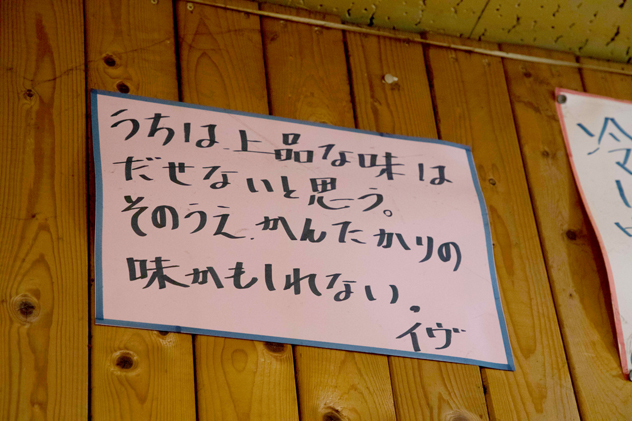 うちは、上品な味は
だせないと思う。
そのうえ、かんたかりの
味かもしれない.
イヴ
冷